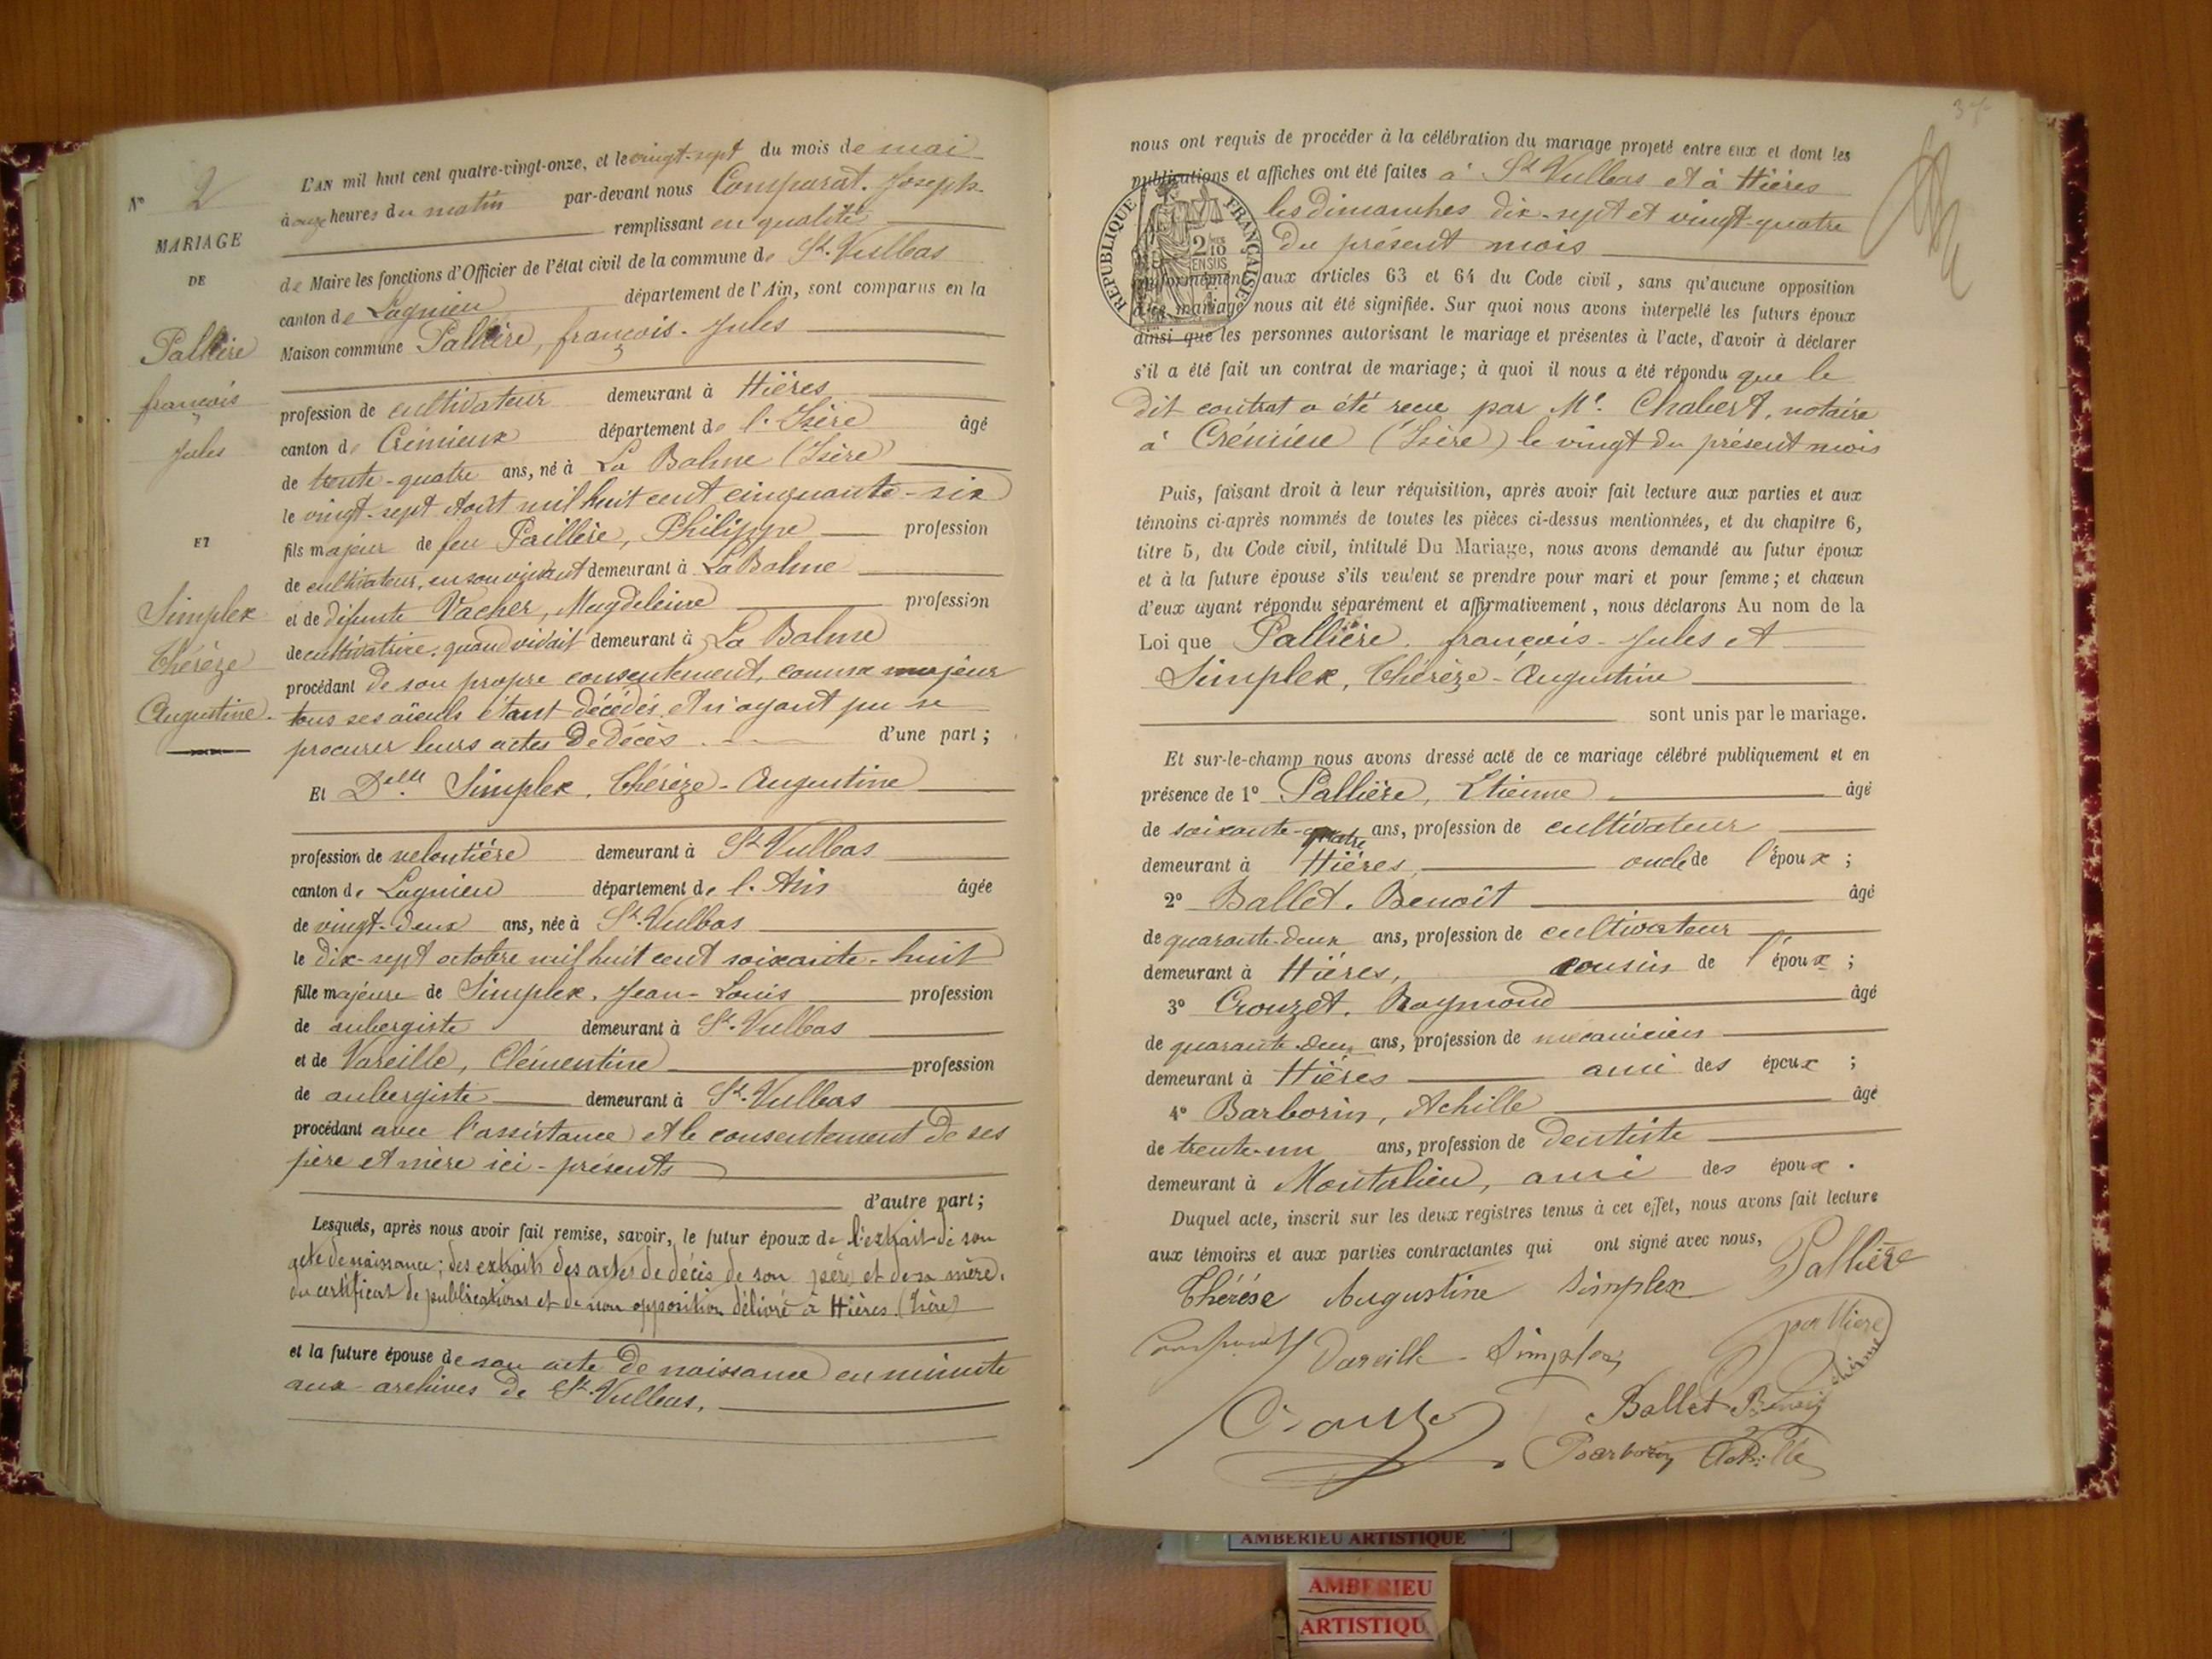 N° 2
MARIAGE
DE
Pallière
françois
Jules
ET
Simplex
Thérèze
Augustine.
L'AN mil huit cent quatre-vingt-onze, et le vingt-sept du mois de mai
à onze heures du matin par-devant nous Comparat. Joseph
remplissant en qualité
de Maire les fonctions d'Officier de l'état civil de la commune de St. Vulbas
canton de Lagnieu département de l'Ain, sont comparus en la
Maison commune Pallière, françois-Jules
profession de cultivateur demeurant à Hières
canton de Crémieux département de l'Isère âgé
de trente-quatre ans, né à La Balme (Isère)
le vingt-sept Août mil huit cent cinquante-six
fils majeur de feu Paillère, Philippe profession
de cultivateur, en son vivant demeurant à La Balme
et de défunte Vacher, Magdeleine profession
de cultivatrice, quand vivait demeurant à La Balme
procédant de son propre consentement, comme majeur
tous ses aïeuls étant décédés et n'ayant pu se
procurer leurs actes de décès d'une part ;
Et Delle Simplex, Thérèze-Augustine
profession de veloutière demeurant à St. Vulbas
canton de Lagnieu département de l'Ain âgée
de vingt-deux ans, née à St. Vulbas
le dix-sept octobre mil huit cent soixante-huit
fille majeure de Simplex, Jean-Louis profession
de aubergiste demeurant à St. Vulbas
et de Vareille, Clémentine profession
de aubergiste demeurant à St. Vulbas
procédant avec l'assistance et le consentement de ses
père et mère ici-présents
d'autre part ;
Lesquels, après nous avoir fait remise, savoir, le futur époux de l'extrait de son
acte de naissance ; des extraits des actes de décès de son père et de sa mère,
du certificat de publications et de non opposition délivré à Hières (Isère)
et la future épouse de son acte de naissance en minute
aux archives de St. Vulbas.
37
nous ont requis de procéder à la célébration du mariage projeté entre eux et dont les
publications et affiches ont été faites à St Vulbas et à Hières
les dimanches dix-sept et vingt-quatre
du présent mois
RÉPUBLIQUE FRANÇAISE
2/10
EN SUS
conformément aux articles 63 et 64 du Code civil, sans qu'aucune opposition
à ce mariage nous ait été signifiée. Sur quoi nous avons interpellé les futurs époux
ainsi que les personnes autorisant le mariage et présentes à l'acte, d'avoir à déclarer
s'il a été fait un contrat de mariage ; à quoi il nous a été répondu que le
dit contrat a été recue par Me. Chabert, notaire
à Crémieu (Isère) le vingt du présent mois
Puis, faisant droit à leur réquisition, après avoir fait lecture aux parties et aux
témoins ci-après nommés de toutes les pièces ci-dessus mentionnées, et du chapitre 6,
titre 5, du Code civil, intitulé Du Mariage, nous avons demandé au futur époux
et à la future épouse s'ils veulent se prendre pour mari et pour femme ; et chacun
d'eux ayant répondu séparément et affirmativement, nous déclarons Au nom de la
Loi que Pallière, françois-Jules et
Simplex, Thérèze-Augustine
sont unis par le mariage.
Et sur-le-champ nous avons dressé acte de ce mariage célébré publiquement et en
présence de 1° Pallière, Etienne âgé
de soixante-quatre ans, profession de cultivateur
demeurant à Hières, oncle de l'époux ;
2° Ballet. Benoît âgé
de quarante-deux ans, profession de cultivateur
demeurant à Hières, cousin de l'époux ;
3° Crouzet. Raymond âgé
de quarante-deux ans, profession de mécanicien
demeurant à Hières ami des époux ;
4° Barborin, Achille âgé
de trente-un ans, profession de dentiste
demeurant à Montalieu, ami des époux.
Duquel acte, inscrit sur les deux registres tenus à cet effet, nous avons fait lecture
aux témoins et aux parties contractantes qui ont signé avec nous,
Thérèse Augustine Simplex Pallière
Comparat Vareille - Simplex
Crouzet Ballet Benoit
Barborin Achille
AMBERIEU ARTISTIQUE
AMBERIEU
ARTISTIQU